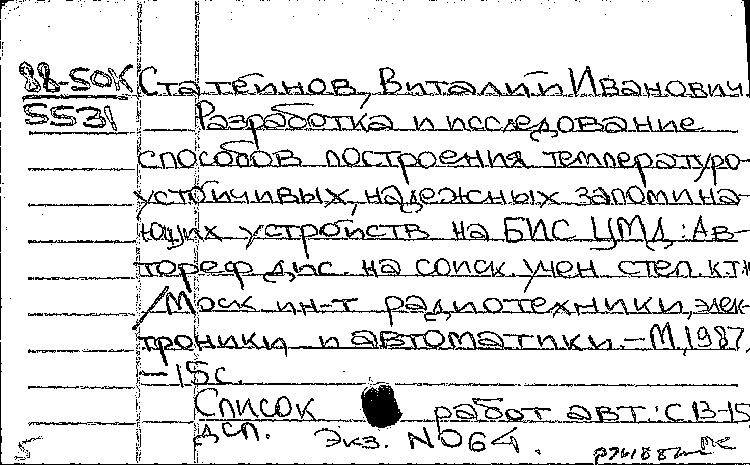 88-50к Статейнов, Виталий Иванович.
5531 Разработка и исследование
способов построения температуро-
устойчивых, надежных запомина-
ющих устройств на БИС ЦМД: Ав-
тореф дис. на соиск. учен степ. к.т.н
/Моск ин-т радиотехники, элек-
троники и автоматики. – М, 1987.
– 15 с.
Список работ авт.: С. 13-15
ДСП. Экз. N064.
5